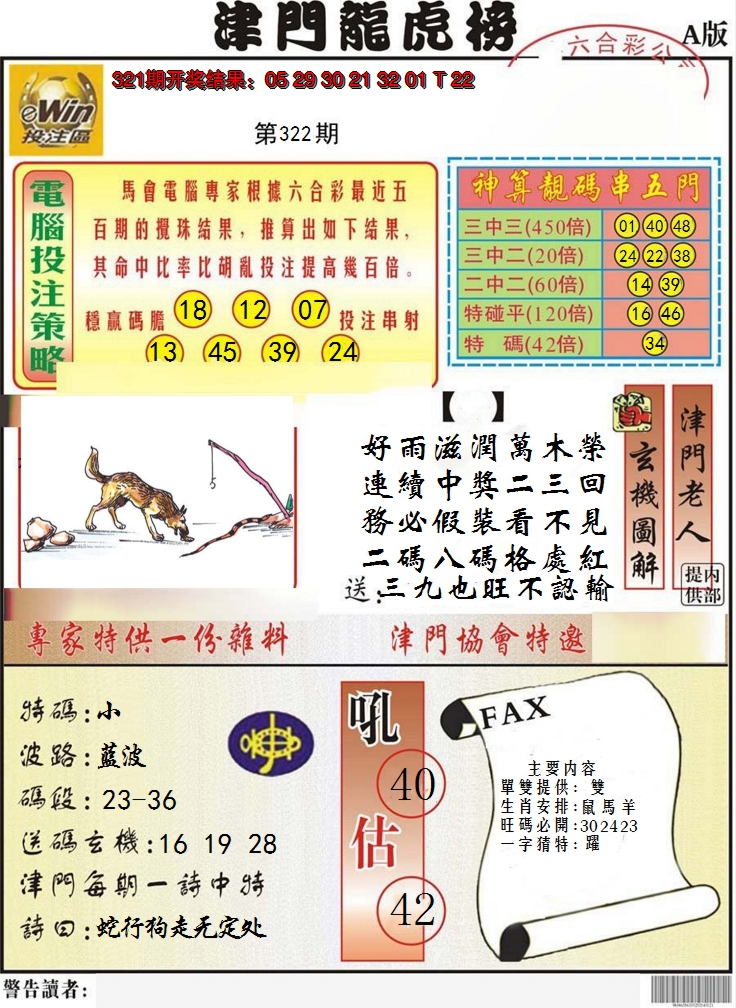 津門龍虎榜
六合彩公
A版
eWin
投注區
321期开奖结果：05 29 30 21 32 01 T 22
第322期
電腦投注策略
馬會電腦專家根據六合彩最近五
百期的攪珠结果，推算出如下结果，
其命中比率比胡亂投注提高幾百倍。
穩贏碼膽 18 12 07 投注串射
13 45 39 24
神算靚碼串五門
三中三(450倍) 01 40 48
三中二(20倍) 24 22 38
二中二(60倍) 14 39
特碰平(120倍) 16 46
特 碼(42倍) 34
【 】
好雨滋潤萬木榮
連續中獎二三回
務必假裝看不見
二碼八碼格處紅
送：三九也旺不認輸
玄機圖解
津門老人
内部提供
專家特供一份雜料
津門協會特邀
特碼:小
波路:藍波
碼段:23-36
送碼玄機:16 19 28
津門每期一詩中特
詩曰:蛇行狗走无定处
吼
40
估
42
FAX
主要内容
單雙提供：雙
生肖安排:鼠馬羊
旺碼必開:302423
一字猜特：躍
警告讀者：